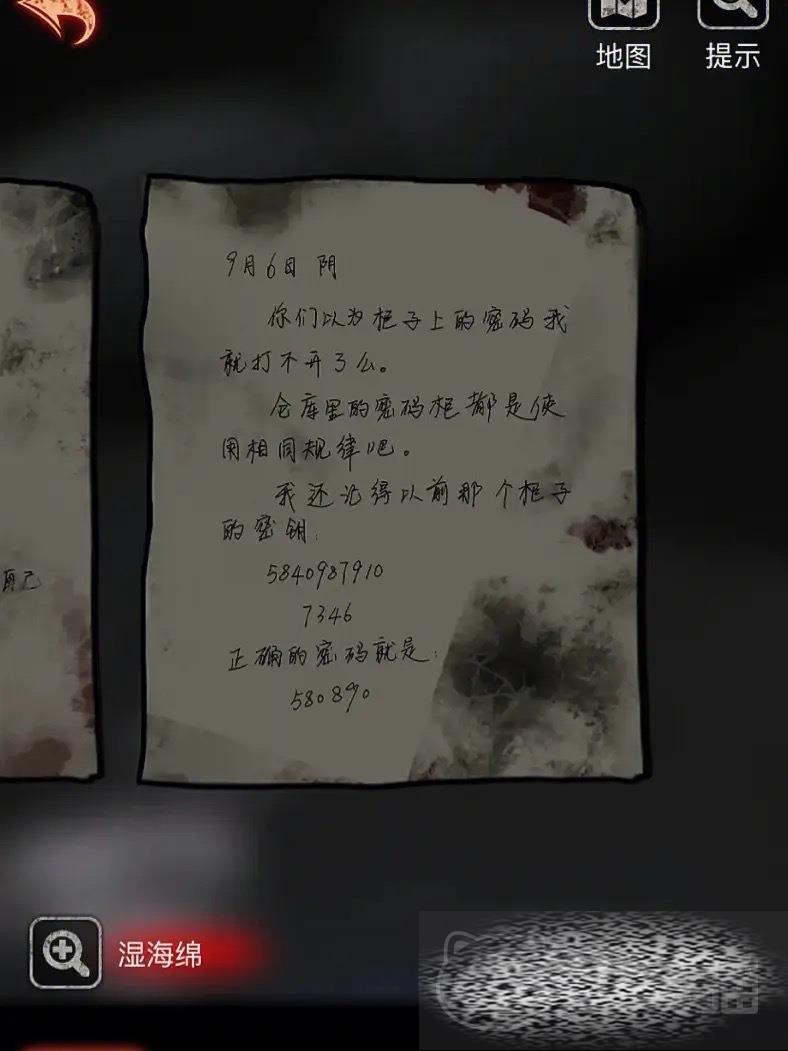 地图 提示
9月6日 阴
你们以为柜子上的密码我
就打不开了么。
仓库里的密码柜都是使
用相同规律吧。
我还记得以前那个柜子
的密钥:
5840987910
自己
7346
正确的密码就是:
580890
湿海绵